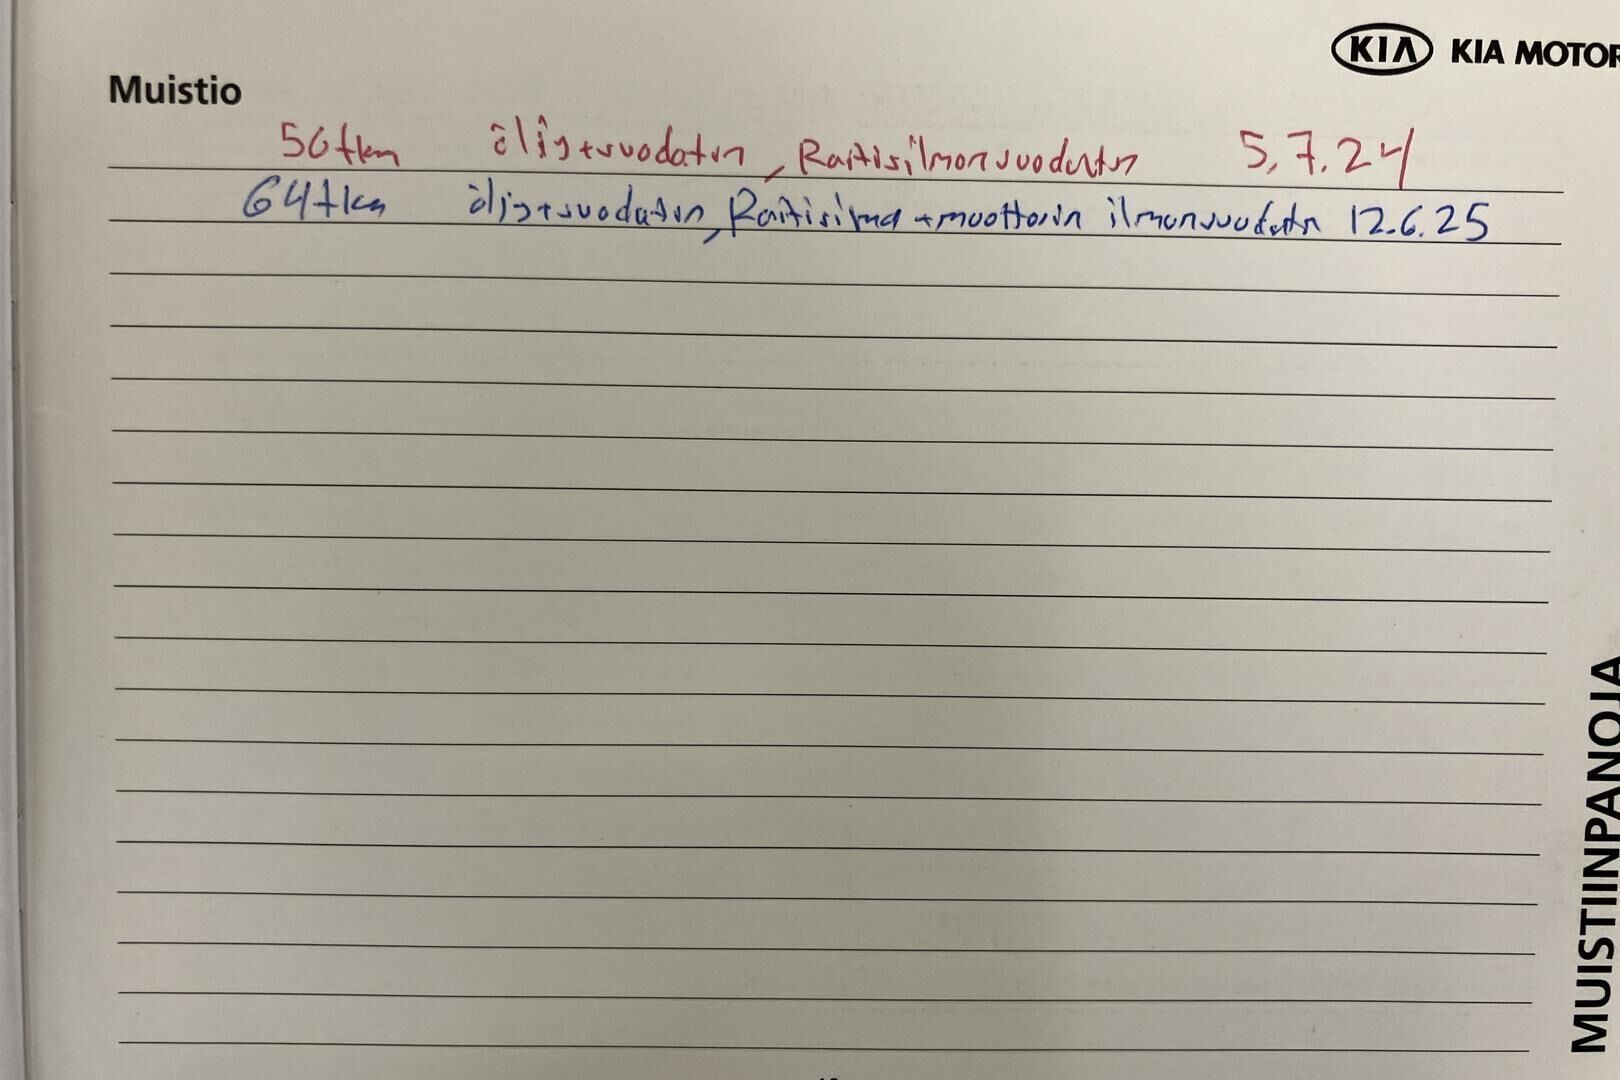 KIA KIA MOTOR
Muistio
56tkm öljy+suodatin, Raitisilmansuodatin 5.7.24
64tkm öljy+suodatin, Raitisilma +moottorin ilmansuodatin 12.6.25
MUISTIINPANOJA